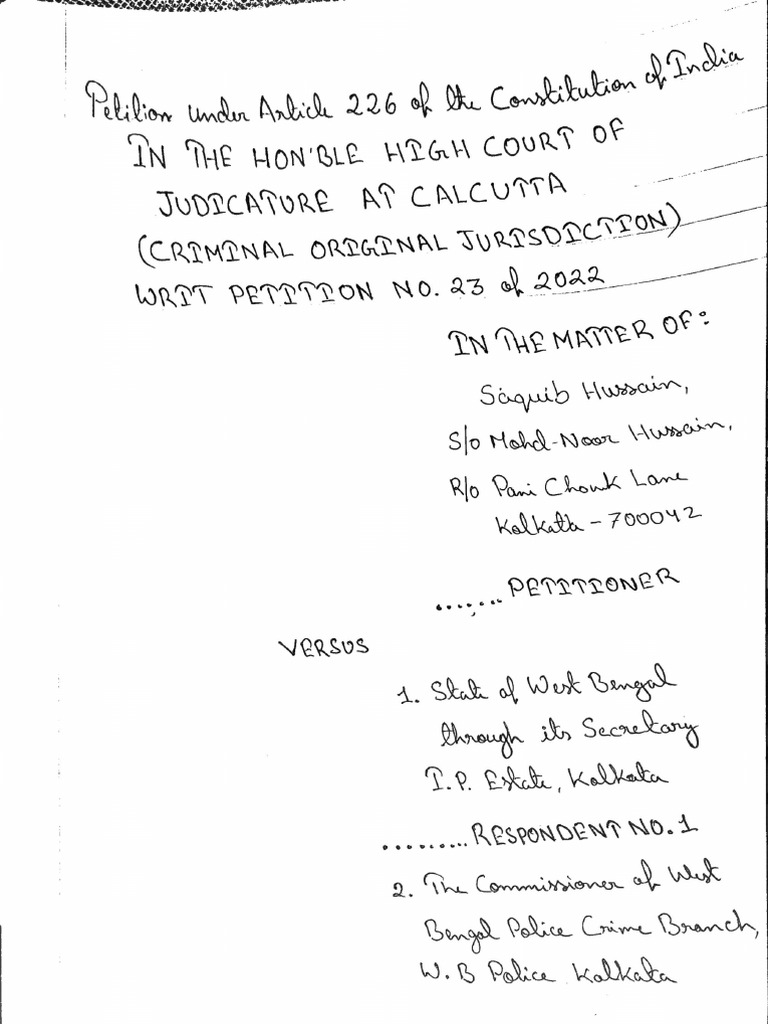 Petition under Article 226 of the Constitution of India
IN THE HON'BLE HIGH COURT OF
JUDICATURE AT CALCUTTA
(CRIMINAL ORIGINAL JURISDICTION)
WRIT PETITION NO. 23 of 2022
IN THE MATTER OF:
Saquib Hussain,
S/o Mohd-Noor Hussain,
R/o Pani Chowk Lane
Kolkatta - 700042
....... PETITIONER
VERSUS
1. State of West Bengal
through its Secretary
I.P. Estate, Kolkata
......... RESPONDENT NO. 1
2. The Commissioner of West
Bengal Police Crime Branch,
W.B Police Kolkata